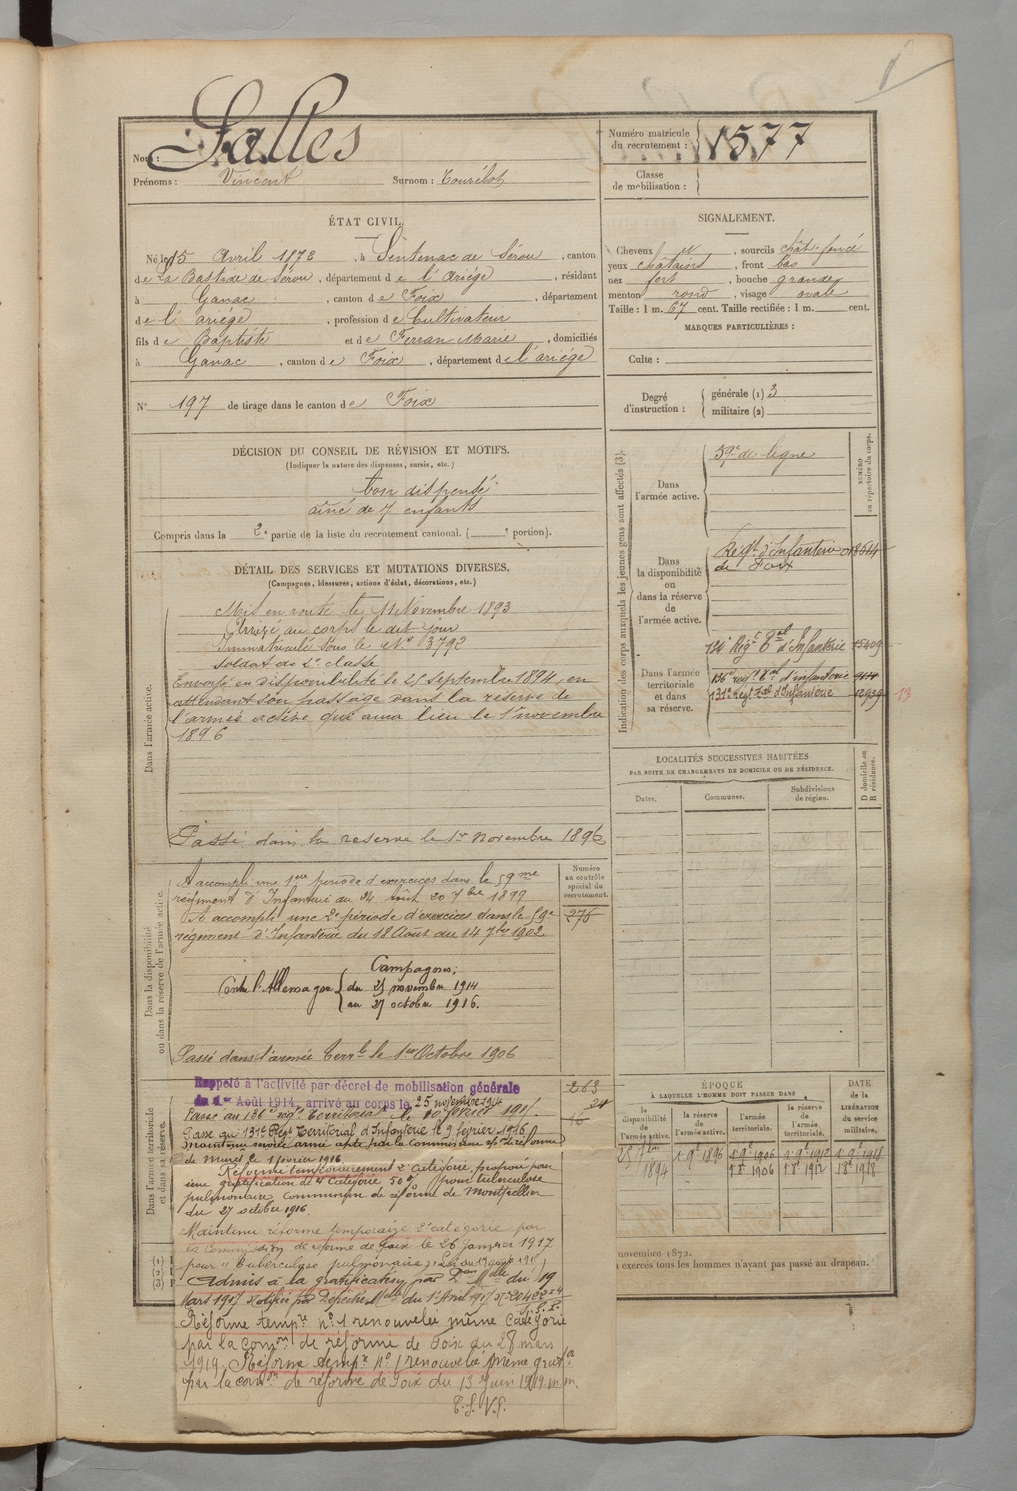 Nom : Salles
Prénoms : Vincent Surnom : Tourélot
Numéro matricule du recrutement : 1577
Classe de mobilisation :
ÉTAT CIVIL.
Né le 15 Avril 1872, à Sentenac de Sérou, canton
de La Bastide de Sérou, département de l'Ariége, résidant
à Ganac, canton de Foix, département
de l'ariége, profession de Cultivateur
fils de Baptiste et de Ferran Marie, domiciliés
à Ganac, canton de Foix, département de l'ariége
N° 197 de tirage dans le canton de Foix
SIGNALEMENT.
Cheveux et, sourcils chât. foncé
yeux châtains, front bas
nez fort, bouche grande
menton rond, visage ovale
Taille : 1 m. 67 cent. Taille rectifiée : 1 m. cent.
MARQUES PARTICULIÈRES :
Culte :
Degré d'instruction : générale (1) 3
militaire (2)
DÉCISION DU CONSEIL DE RÉVISION ET MOTIFS.
(Indiquer la nature des dispenses, sursis, etc.)
bon dispensé
aîné de 7 enfants
Compris dans la 2e partie de la liste du recrutement cantonal. ( e portion).
DÉTAIL DES SERVICES ET MUTATIONS DIVERSES.
(Campagnes, blessures, actions d'éclat, décorations, etc.)
Dans l'armée active.
Mis en route le 11 Novembre 1893
Arrivé au corps le dit jour
Immatriculé sous le N° 3792
soldat de 2e classe
Envoyé en disponibilité le 25 septembre 1894, en
attendant son passage dans la réserve de
l'armée active qui aura lieu le 1er novembre
1896
Passé dans la reserve le 1er Novembre 1896
Dans la disponibilité ou dans la réserve de l'armée active.
Numéro au contrôle spécial du recrutement.
276
A accompli une 1ere période d'exercices dans le 59me
régiment d'Infanterie du 24 Août 20 7bre 1899
A accompli une 2e période d'exercices dans le 59e
régiment d'Infanterie du 18 Août au 14 7bre 1902.
Campagnes,
Contre l'Allemagne du 25 novembre 1914
au 27 octobre 1916.
Passé dans l'armée Terrle le 1er Octobre 1906
Dans l'armée territoriale et dans sa réserve.
Rappelé à l'activité par décret de mobilisation générale
du 1er Août 1914, arrivé au corps le 25 novembre 1914
263
Passé au 136e régt Territorial le
Passé au 131e Régt Territorial d'Infanterie le 9 février 1916
Maintenu service armé apte par la Commission sple de réforme
de Muret le 1 février 1916
Réformé temporairement 2e catégorie, proposé pour
une gratification de 4e Catégorie 50% pour tuberculose
pulmonaire. Commission de réforme de Montpellier
du 27 octobre 1916.
Maintenu réforme temporaire 2e catégorie par
la Commission de réforme de Foix le 26 Janvier 1917
pour "Tuberculose pulmonaire"
Admis à la gratification par Don Mlle du 19
Mars 1917 Notifiée par Dépêche Mlle du 1er Avril 1917
Réforme tempre n°1 renouvelée même catégorie
par la comon de réforme de Foix du 28 mars
1919. Réforme tempre n° 1 renouvelée même graton
par la comon de réforme de Foix du 13 Juin 1919
T. S. V. P.
Indication des corps auxquels les jeunes gens sont affectés (3).
NUMÉRO au répertoire du corps.
Dans l'armée active.
59e de ligne
Dans la disponibilité ou dans la réserve de l'armée active.
Régt d'Infanterie
de Foix
Dans l'armée territoriale et dans sa réserve.
Régt Tal d'Infanterie 15409
136e régt Tal d'infanterie
131e Régt Tal d'Infanterie 12939
LOCALITÉS SUCCESSIVES HABITÉES
PAR SUITE DE CHANGEMENTS DE DOMICILE OU DE RÉSIDENCE.
Dates. Communes. Subdivisions de région. D domicile ou R résidence.
ÉPOQUE
À LAQUELLE L'HOMME DOIT PASSER DANS
DATE DE LA LIBÉRATION du service militaire.
la disponibilité de l'armée active. la réserve de l'armée active. l'armée territoriale. la réserve de l'armée territoriale.
25 7bre 1894 1 9e 1896 1 9e 1906 1 9e 1912 1 9e 1918
1 8e 1906 1 8e 1912 1 8e 1918
novembre 1872.
exercés tous les hommes n'ayant pas passé au drapeau.
(1)
(2)
(3)